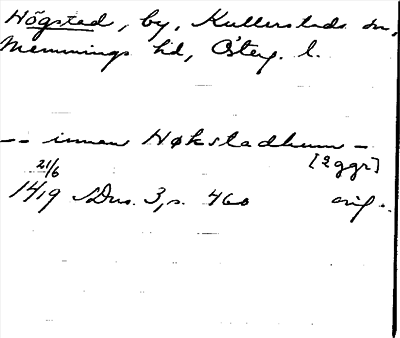 Högstad, by, Kullerstads sn,
Memmings hd, Österg. l.
-- innan Høkstadhum -
[2 ggr]
21/6
1419 SDns. 3, s. 460 orig.